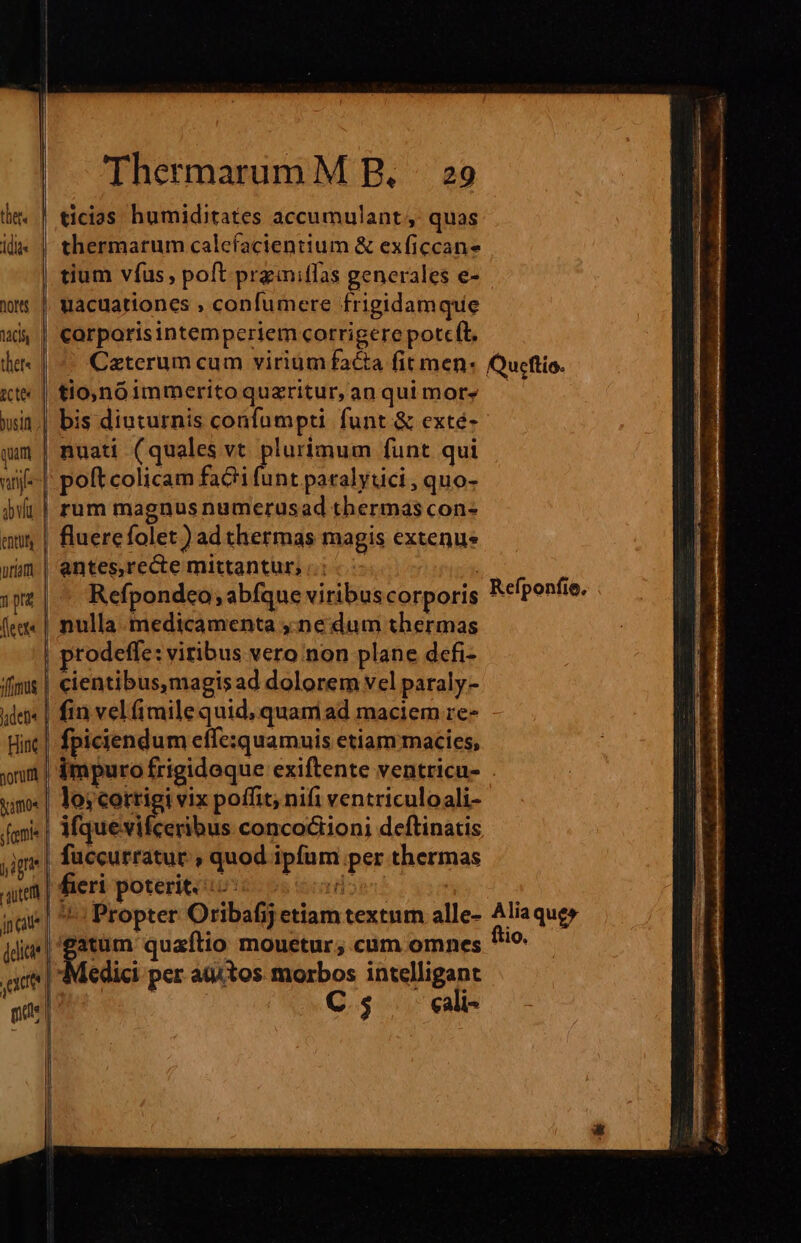 Thermarum M B. 29
ticias humiditates accumulant, quas
thermarum calefacientium & exſiccan-
tium vſus, poſt præmiſſas generales e-
uacuationes, conſumere frigidamque
corporis intemperiem corrigere poteſt.
Cæterum cum virium facta ſit men- Queſtio.
tio, nō immerito quæritur, an qui mor-
bis diuturnis conſumpti ſunt & exte-
nuati (quales vt plurimum ſunt qui
poſt colicam facti ſunt paralytici, quo-
rum magnus numerus ad thermas con-
fluere ſolet) ad thermas magis extenu-
antes, recte mittantur,
Reſpondeo, abſque viribus corporis Reſponſio.
nulla medicamenta, ne dum thermas
prodeſſe: viribus vero non plane defi-
cientibus, magis ad dolorem vel paraly-
ſin vel ſimile quid, quam ad maciem re-
ſpiciendum eſſe: quamuis etiam macies,
impuro frigidoque exiſtente ventricu-
lo, corrigi vix poſſit, niſi ventriculo ali-
iſque viſceribus concoctioni deſtinatis
ſuccurratur, quod ipſum per thermas
fieri poterit.
Propter Oribaſij etiam textum alle- Alia queſ
gatum quæſtio mouetur, cum omnes ſtio.
Medici per auctos morbos intelligant
C 5 cali-